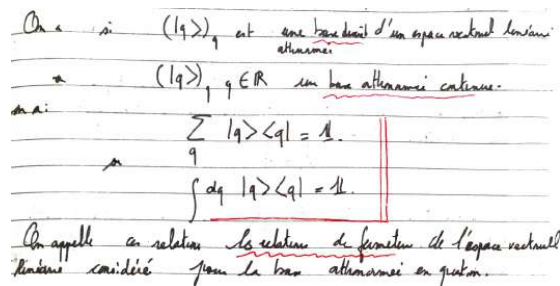 On a si (|q>)_q est une base discrète d'un espace vectoriel linéaire
orthonormée
(|q>)_q q ∈ ℝ une base orthonormée continue.
on a:
∑_q |q><q| = 𝟙.
∫ dq |q><q| = 𝟙.
On appelle ces relations les relations de fermeture de l'espace vectoriel
linéaire considéré pour la base orthonormée en question.